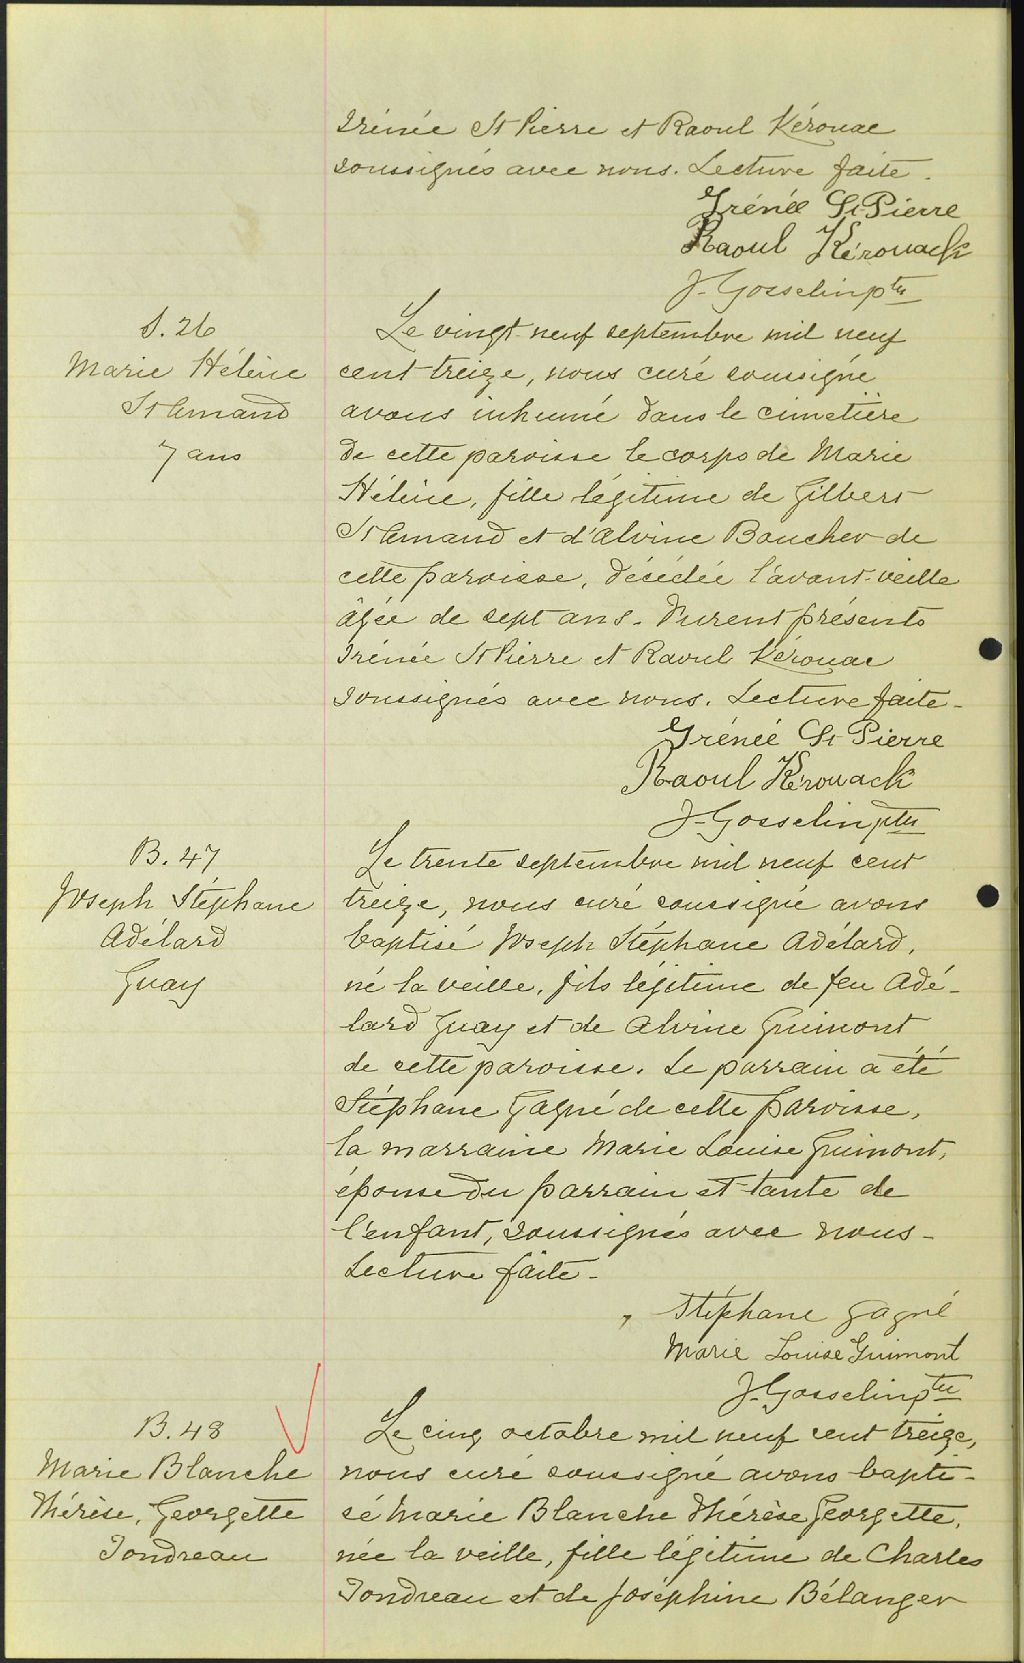 Irénée St Pierre et Raoul Kérouac
soussignés avec nous. Lecture faite.
Irénée St Pierre
Raoul Kérouack
J. Gosselin ptre
S. 26
Marie Hélène
St Amand
7 ans
Le vingt-neuf septembre mil neuf
cent treize, nous curé soussigné
avons inhumé dans le cimetière
de cette paroisse le corps de Marie
Hélène, fille légitime de Gilbert
St Amand et d'Alvine Boucher de
cette paroisse, décédée l'avant-veille
âgée de sept ans. Furent présents
Irénée St Pierre et Raoul Kérouac
soussignés avec nous. Lecture faite.
Irénée St Pierre
Raoul Kérouack
J. Gosselin ptre
B. 47
Joseph Stéphane
Adélard
Guay
Le trente septembre mil neuf cent
treize, nous curé soussigné avons
baptisé Joseph Stéphane Adélard,
né la veille, fils légitime de feu Adé-
lard Guay et de Alvine Guimont
de cette paroisse. Le parrain a été
Stéphane Gagné de cette paroisse,
la marraine Marie Louise Guimont,
épouse du parrain et tante de
l'enfant, soussignés avec nous-
Lecture faite-
Stéphane Gagné
Marie Louise Guimont
J. Gosselin ptre
B. 48
Marie Blanche
Thérèse, Georgette
Tondreau
Le cinq octobre mil neuf cent treize,
nous curé soussigné avons bapti-
sé Marie Blanche Thérèse Georgette,
née la veille, fille légitime de Charles
Tondreau et de Joséphine Bélanger